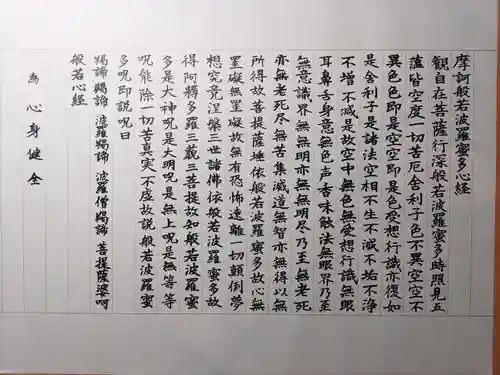 摩訶般若波羅蜜多心経
観自在菩薩行深般若波羅蜜多時照見五
蘊皆空度一切苦厄舎利子色不異空空不
異色色即是空空即是色受想行識亦復如
是舎利子是諸法空相不生不滅不垢不浄
不増不減是故空中無色無受想行識無眼
耳鼻舌身意無色声香味触法無眼界乃至
無意識界無無明亦無無明尽乃至無老死
亦無老死尽無苦集滅道無智亦無得以無
所得故菩提薩埵依般若波羅蜜多故心無
罣礙無罣礙故無有恐怖遠離一切顛倒夢
想究竟涅槃三世諸仏依般若波羅蜜多故
得阿耨多羅三藐三菩提故知般若波羅蜜
多是大神呪是大明呪是無上呪是無等等
呪能除一切苦真実不虚故説般若波羅蜜
多呪即説呪曰
羯諦羯諦 波羅羯諦 波羅僧羯諦 菩提薩婆訶
般若心経
為 心身健全